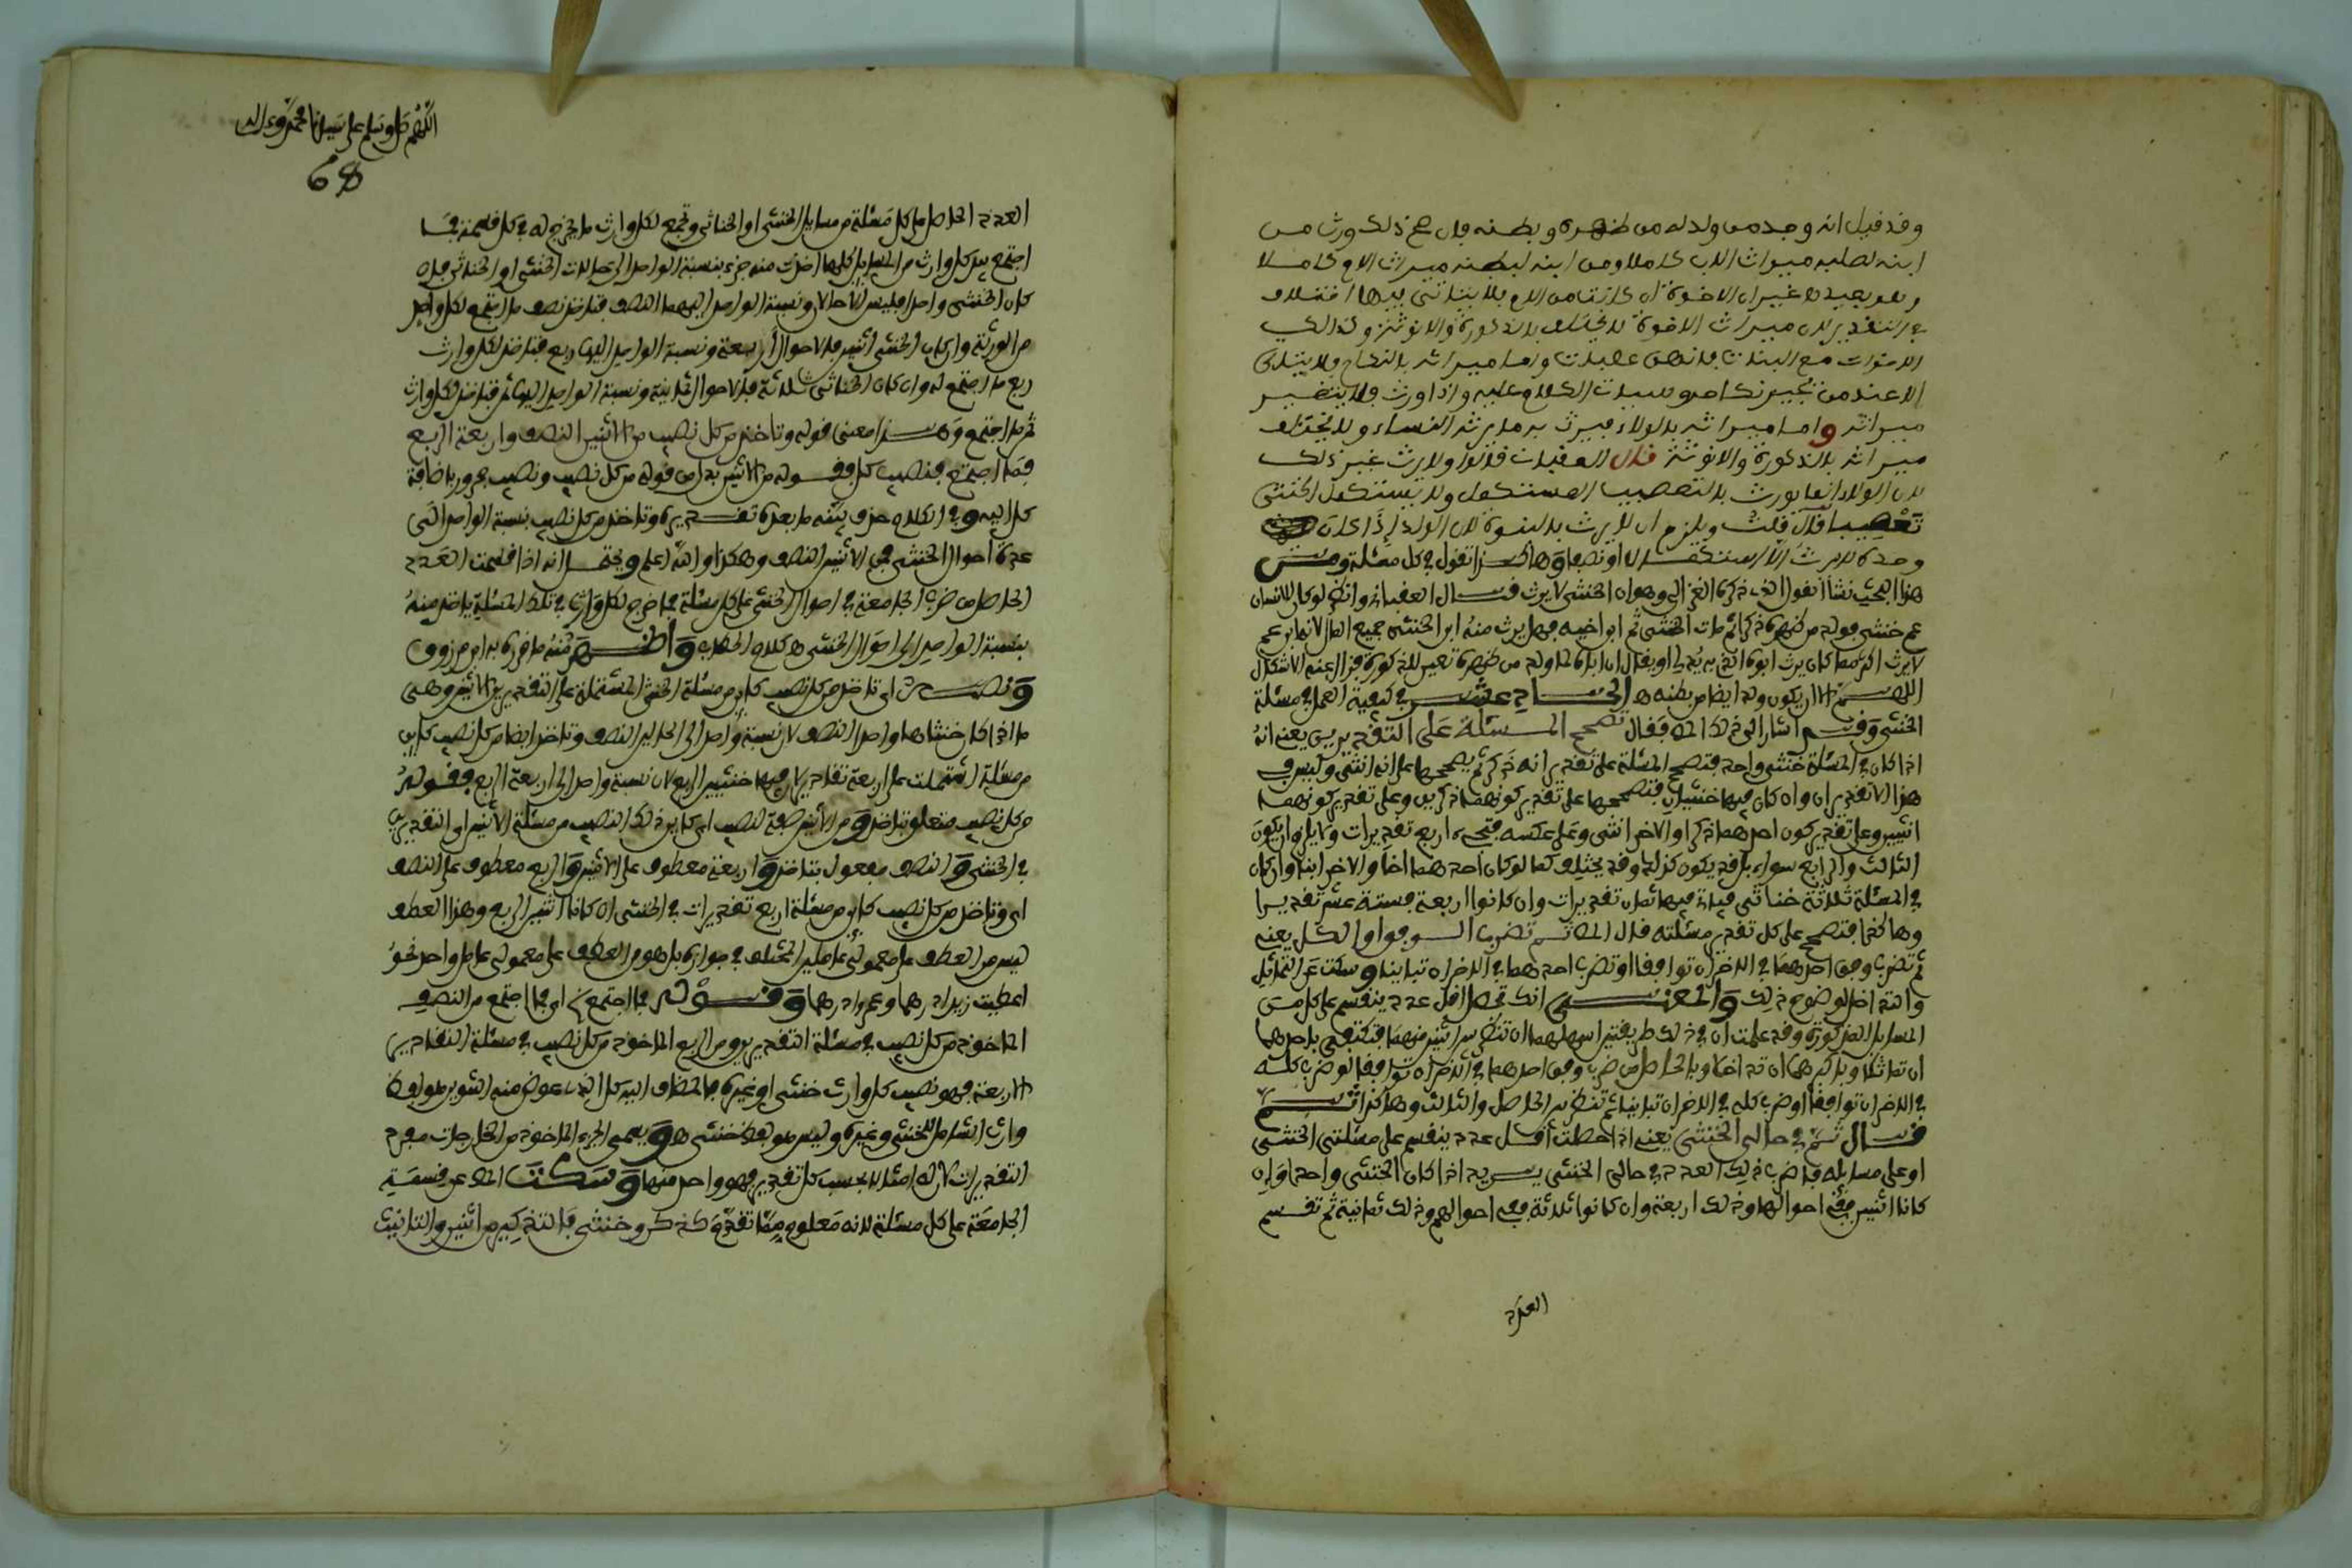 وقد قيل انه وجد من ولد له من ظهره وبطنه فان صح ذلك ورث من
ابنه لصلبه ميراث الاب كاملا ومن ابنه لبطنه ميراث الام كاملا
وهو بعيد ميراث الاخوة ان كانت من الام فلا يتاتى فيها اختلاف
في التقدير لان ميراث الاخوة لا يختلف بالذكورة والانوثة وكذالك
الاخوات مع البنات فانهن عصبات واما ميراثه بالنكاح فلا يتاتى
الا عند من يجيز نكاحه وسيات الكلام عليه واذا ورث فلا يتغير
ميراثه واما ميراثه بالولاء فيرث به ما يرثه النساء ولا يختلف
ميراثه بالذكورة والانوثة قال العقبات قالوا ولا يرث غير ذلك
لان الولاء انما يورث بالتعصيب ولا يستكمل الخنثى
تعصيبا قال قلت ويلزم ان لا يرث بالبنوة لان الولد اذا كان
وحده لا يرث الا استكمالا او نصفا وهاكذا تقول في كل مسئلة ومن
هذا البحث نشا نقول الذي ذكره الغزالي وهو ان الخنثى لا يرث قال العقبات وانظر لو كان للانسان
عم خنثى مولد من ظهره ذكرا ثم مات الخنثى ثم ابن اخيه فهل يرث منه ابن الخنثى جميع المال لانه ابن عم
لا يرث اكثر مما كان يرث ابوه الذي به يدلي او يقال ان اباه لما ولد من ظهره تعين للذكورة فزال عنه الاشكال
اللهم الا ان يكون ولد ايضا من بطنه ه الحادي عشر في كيفية العمل في مسئلة
الخنثى وقد اشار الى ذلك المص فقال تصحح المسئلة على التقديرين يعني انه
اذا كان في المسئلة خنثى واحد فتصحح المسئلة على تقدير انه ذكر ثم يصححها على انه انثى وليس في
هذا الا تقديران وان كان فيها خنثيان فتصححها على تقدير كونهما ذكرين وعلى تقدير كونهما
انثيين وعلى تقدير كون احدهما ذكرا والاخر انثى وعلى عكسه فتجيء اربع تقديرات ولا يلزم ان يكون
الثالث والرابع سواء بل قد يكون كذلك وقد يختلف كما لو كان احدهما اخا والاخر ابنا وان كان
في المسئلة ثلاثة خناثى فيها ثمان تقديرات وان كانوا اربعة فستة عشر تقديرا
وهاكذا فتصحح على كل تقدير مسئلته قال المص ثم تضرب الوفق او الكل يعني
ثم تضرب وفق احدهما في الاخر ان توافقا او تضرب احدهما في الاخر ان تباينا وسكت عن التماثل
والتداخل لوضوح ذلك والمعنى انك تحصل اقل عدد ينقسم على كل من
المسايل المذكورة وقد علمت ان في ذلك طريقتين اسهلهما ان تنظر بين اثنين منهما فتكتفي باحدهما
ان تماثلا وباكبرهما ان تداخلا وبالحاصل من ضرب وفق احدهما في الاخر ان توافقا او ضرب كله
في الاخر ان توافقا او ضرب كله في الاخر ان تباينا ثم تنظر بين الحاصل والثالث وهاكذا ثم
قال ثم في حالى الخنثى يعني اذا حصلت اقل عدد ينقسم على مسئلتي الخنثى
او على مسايله فاضرب ذلك العدد في حالى الخنثى يريد اذا كان الخنثى واحدا وان
كانا اثنين ففي احوالهما وذلك اربعة وان كانوا ثلاثة ففي احوالهم وذلك ثمانية ثم تقسم
العدد
اللهم صل وسلم على سيدنا محمد وءاله
68
العدد الحاصل على كل مسئلة من مسايل الخنثى او الخناثى وتجمع لكل وارث ما يخرج له في كل قسمة فما
اجتمع بيد كل وارث من المسايل كلها اخذت منه جزء بنسبة الواحد الى حالات الخنثى او الخناثى فان
كان الخنثى واحدا فليس الا حالان ونسبة الواحد اليهما النصف فتاخذ نصف ما اجتمع لكل واحد
من الورثة وان كان الخنثى اثنين فالاحوال اربعة ونسبة الواحد اليها ربع فتاخذ لكل وارث
ربع ما اجتمع له وان كان الخناثى ثلاثة فالاحوال ثمانية ونسبة الواحد اليها ثمن فتاخذ لكل وارث
ثمن ما اجتمع وهذا معنى قوله وتاخذ من كل نصيب من الاثنين النصف واربعة الربع
فما اجتمع فنصيب كل فقوله من الاثنين بدل من قوله من كل نصيب ونصيب مجرور باضافة
كل اليه وفي الكلام حذف بينه ما بعده تقديره وتاخذ من كل نصيب بنسبة الواحد الى
عدة احوال الخنثى فمن الاثنين النصف وهكذا والله اعلم ويحتمل انه اذا قسمت العدد
الحاصل من ضرب الجامعة في احوال الخنثى على كل مسئلة فما خرج لكل وارث في تلك المسئلة ياخذ منه
بنسبة الواحد الى احوال الخنثى ه كلام الحطاب واظهر منه ما قرره به ابن مرزوق
ونصه اى تاخذ من كل نصيب كاين من مسئلة الخنثى المشتملة على التقديرين الاثنين وهي
ما اذا كان خنثاها واحدا النصف لان نسبة واحد الى الحالين النصف وتاخذ ايضا من كل نصيب كاين
من مسئلة اشتملت على اربعة تقادير لان فيها خنثيين الربع لان نسبة واحد الى اربعة الربع فقوله
من كل نصيب متعلق بتاخذ ومن الاثنين صفة لنصيب اى كاين ذلك النصيب من مسئلة الاثنين اى التقديرين
في الخنثى والنصف مفعول بتاخذ واربعة معطوف على الاثنين والربع معطوف على النصف
اى وتاخذ من كل نصيب كاين من مسئلة اربع تقديرات في الخنثى ان كانا اثنين الربع وهذا العطف
ليس من العطف على معمولي عاملين المختلف في جوازه بل هو من العطف على معمولي عامل واحد نحو
اعطيت زيدا درهما وعمرا درهما وقوله فما اجتمع اى فما اجتمع من النصف
الماخوذ من كل نصيب في مسئلة التقديرين ومن الربع الماخوذ من كل نصيب في مسئلة التقادير
الاربعة فهو نصيب كل وارث خنثى او غيره فالمضاف اليه كل الذي عوض منه التنوين هو لفظ
وارث الشامل للخنثى وغيره وليس هو لفظ خنثى ه ويسمى الجزء الماخوذ من الحاصلات مفرد
التقديرات لان له امثالا بحسب كل تقدير فهو واحد منها وسكت المص عن قسمة
الجامعة على كل مسئلة لانه معلوم مما تقدم كذكر وخنثى فالتذكير من اثنين والتانيث